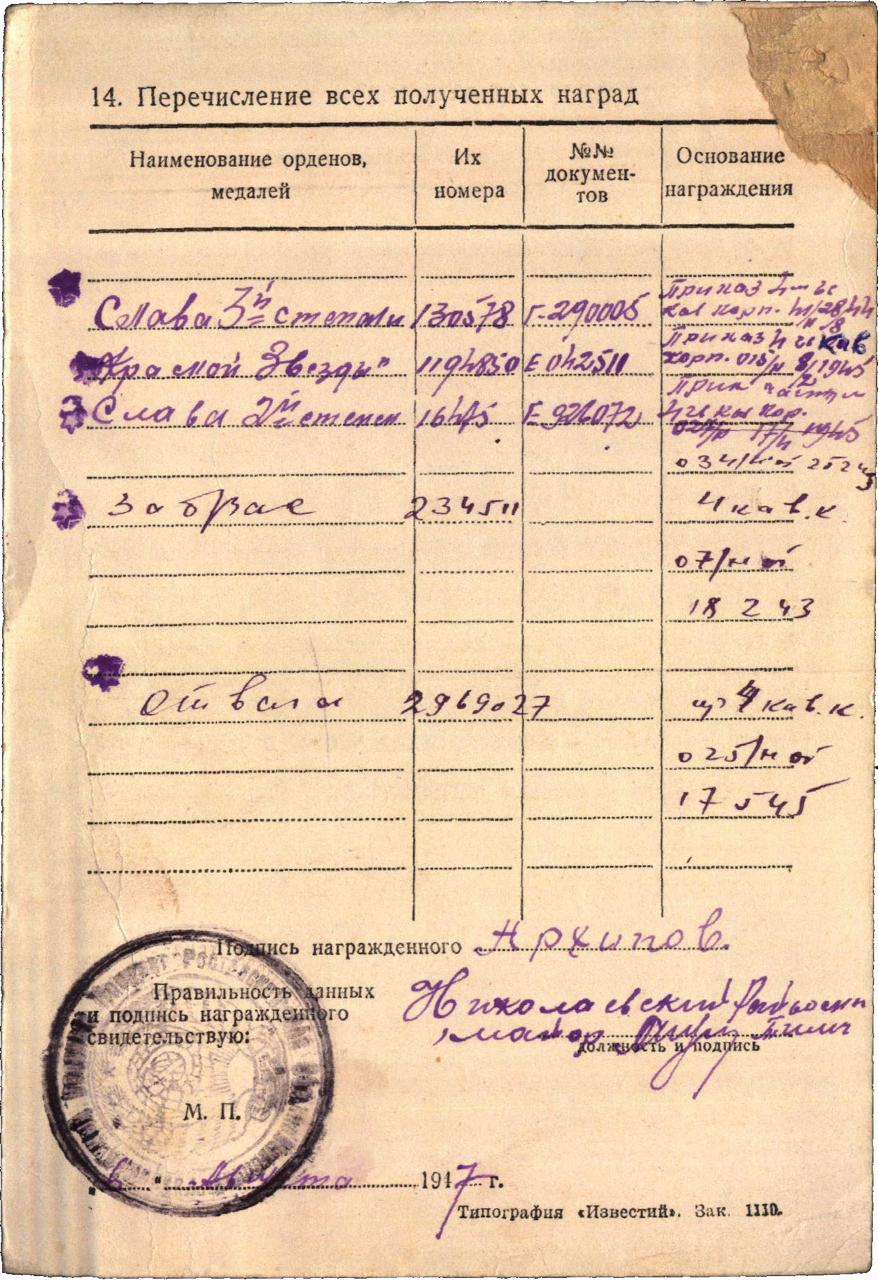 14. Перечисление всех полученных наград
Наименование орденов, медалей
Их номера
№№ документов
Основание награждения
Слава 3й степени 130578 Г-290005 Приказ 4 гв
кав корп.
"Красной Звезды" 1194850 Е 042511 Приказ 4 гв кав
корп.
Слава 2й степени 16475 Е 926072
4 гв кав кор.
034/н от
За отваг 234511 4 кав. к.
07/н от
18 2 43
Отвага 2969027 4 кав. к.
025/н от
17 5 45
Подпись награжденного Архипов.
Правильность данных
и подпись награжденного
свидетельствую:
Николаевский Райвоенк
майор
должность и подпись
М. П.
"6" Августа 1947 г.
Типография «Известий». Зак. 1110.